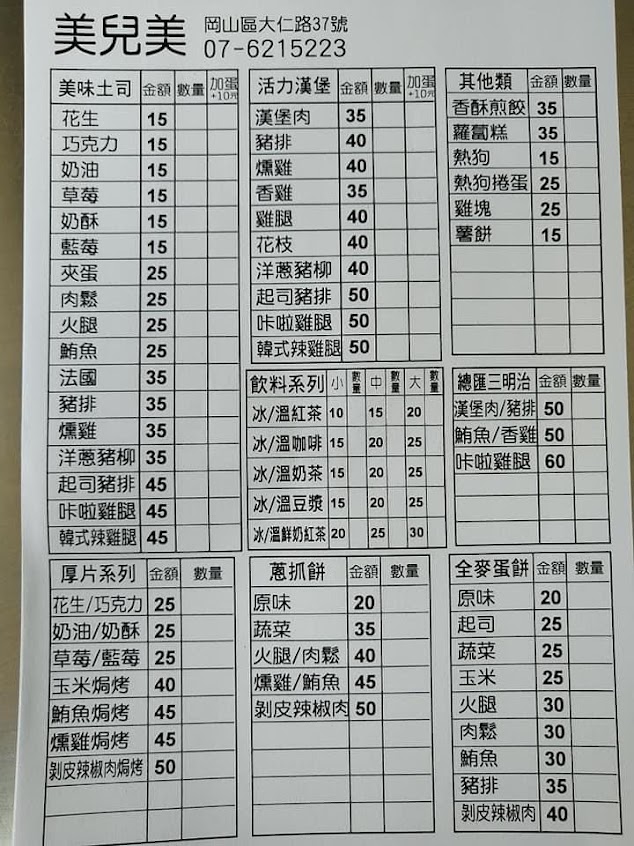 美兒美 岡山區大仁路37號
07-6215223
美味土司 金額 數量 加蛋+10元
花生 15
巧克力 15
奶油 15
草莓 15
奶酥 15
藍莓 15
夾蛋 25
肉鬆 25
火腿 25
鮪魚 25
法國 35
豬排 35
燻雞 35
洋蔥豬柳 35
起司豬排 45
咔啦雞腿 45
韓式辣雞腿 45
活力漢堡 金額 數量 加蛋+10元
漢堡肉 35
豬排 40
燻雞 40
香雞 35
雞腿 40
花枝 40
洋蔥豬柳 40
起司豬排 50
咔啦雞腿 50
韓式辣雞腿 50
其他類 金額 數量
香酥煎餃 35
蘿蔔糕 35
熱狗 15
熱狗捲蛋 25
雞塊 25
薯餅 15
飲料系列 小 數量 中 數量 大 數量
冰/溫紅茶 10 15 20
冰/溫咖啡 15 20 25
冰/溫奶茶 15 20 25
冰/溫豆漿 15 20 25
冰/溫鮮奶紅茶 20 25 30
總匯三明治 金額 數量
漢堡肉/豬排 50
鮪魚/香雞 50
咔啦雞腿 60
厚片系列 金額 數量
花生/巧克力 25
奶油/奶酥 25
草莓/藍莓 25
玉米焗烤 40
鮪魚焗烤 45
燻雞焗烤 45
剝皮辣椒肉焗烤 50
蔥抓餅 金額 數量
原味 20
蔬菜 35
火腿/肉鬆 40
燻雞/鮪魚 45
剝皮辣椒肉 50
全麥蛋餅 金額 數量
原味 20
起司 25
蔬菜 25
玉米 25
火腿 30
肉鬆 30
鮪魚 30
豬排 35
剝皮辣椒肉 40